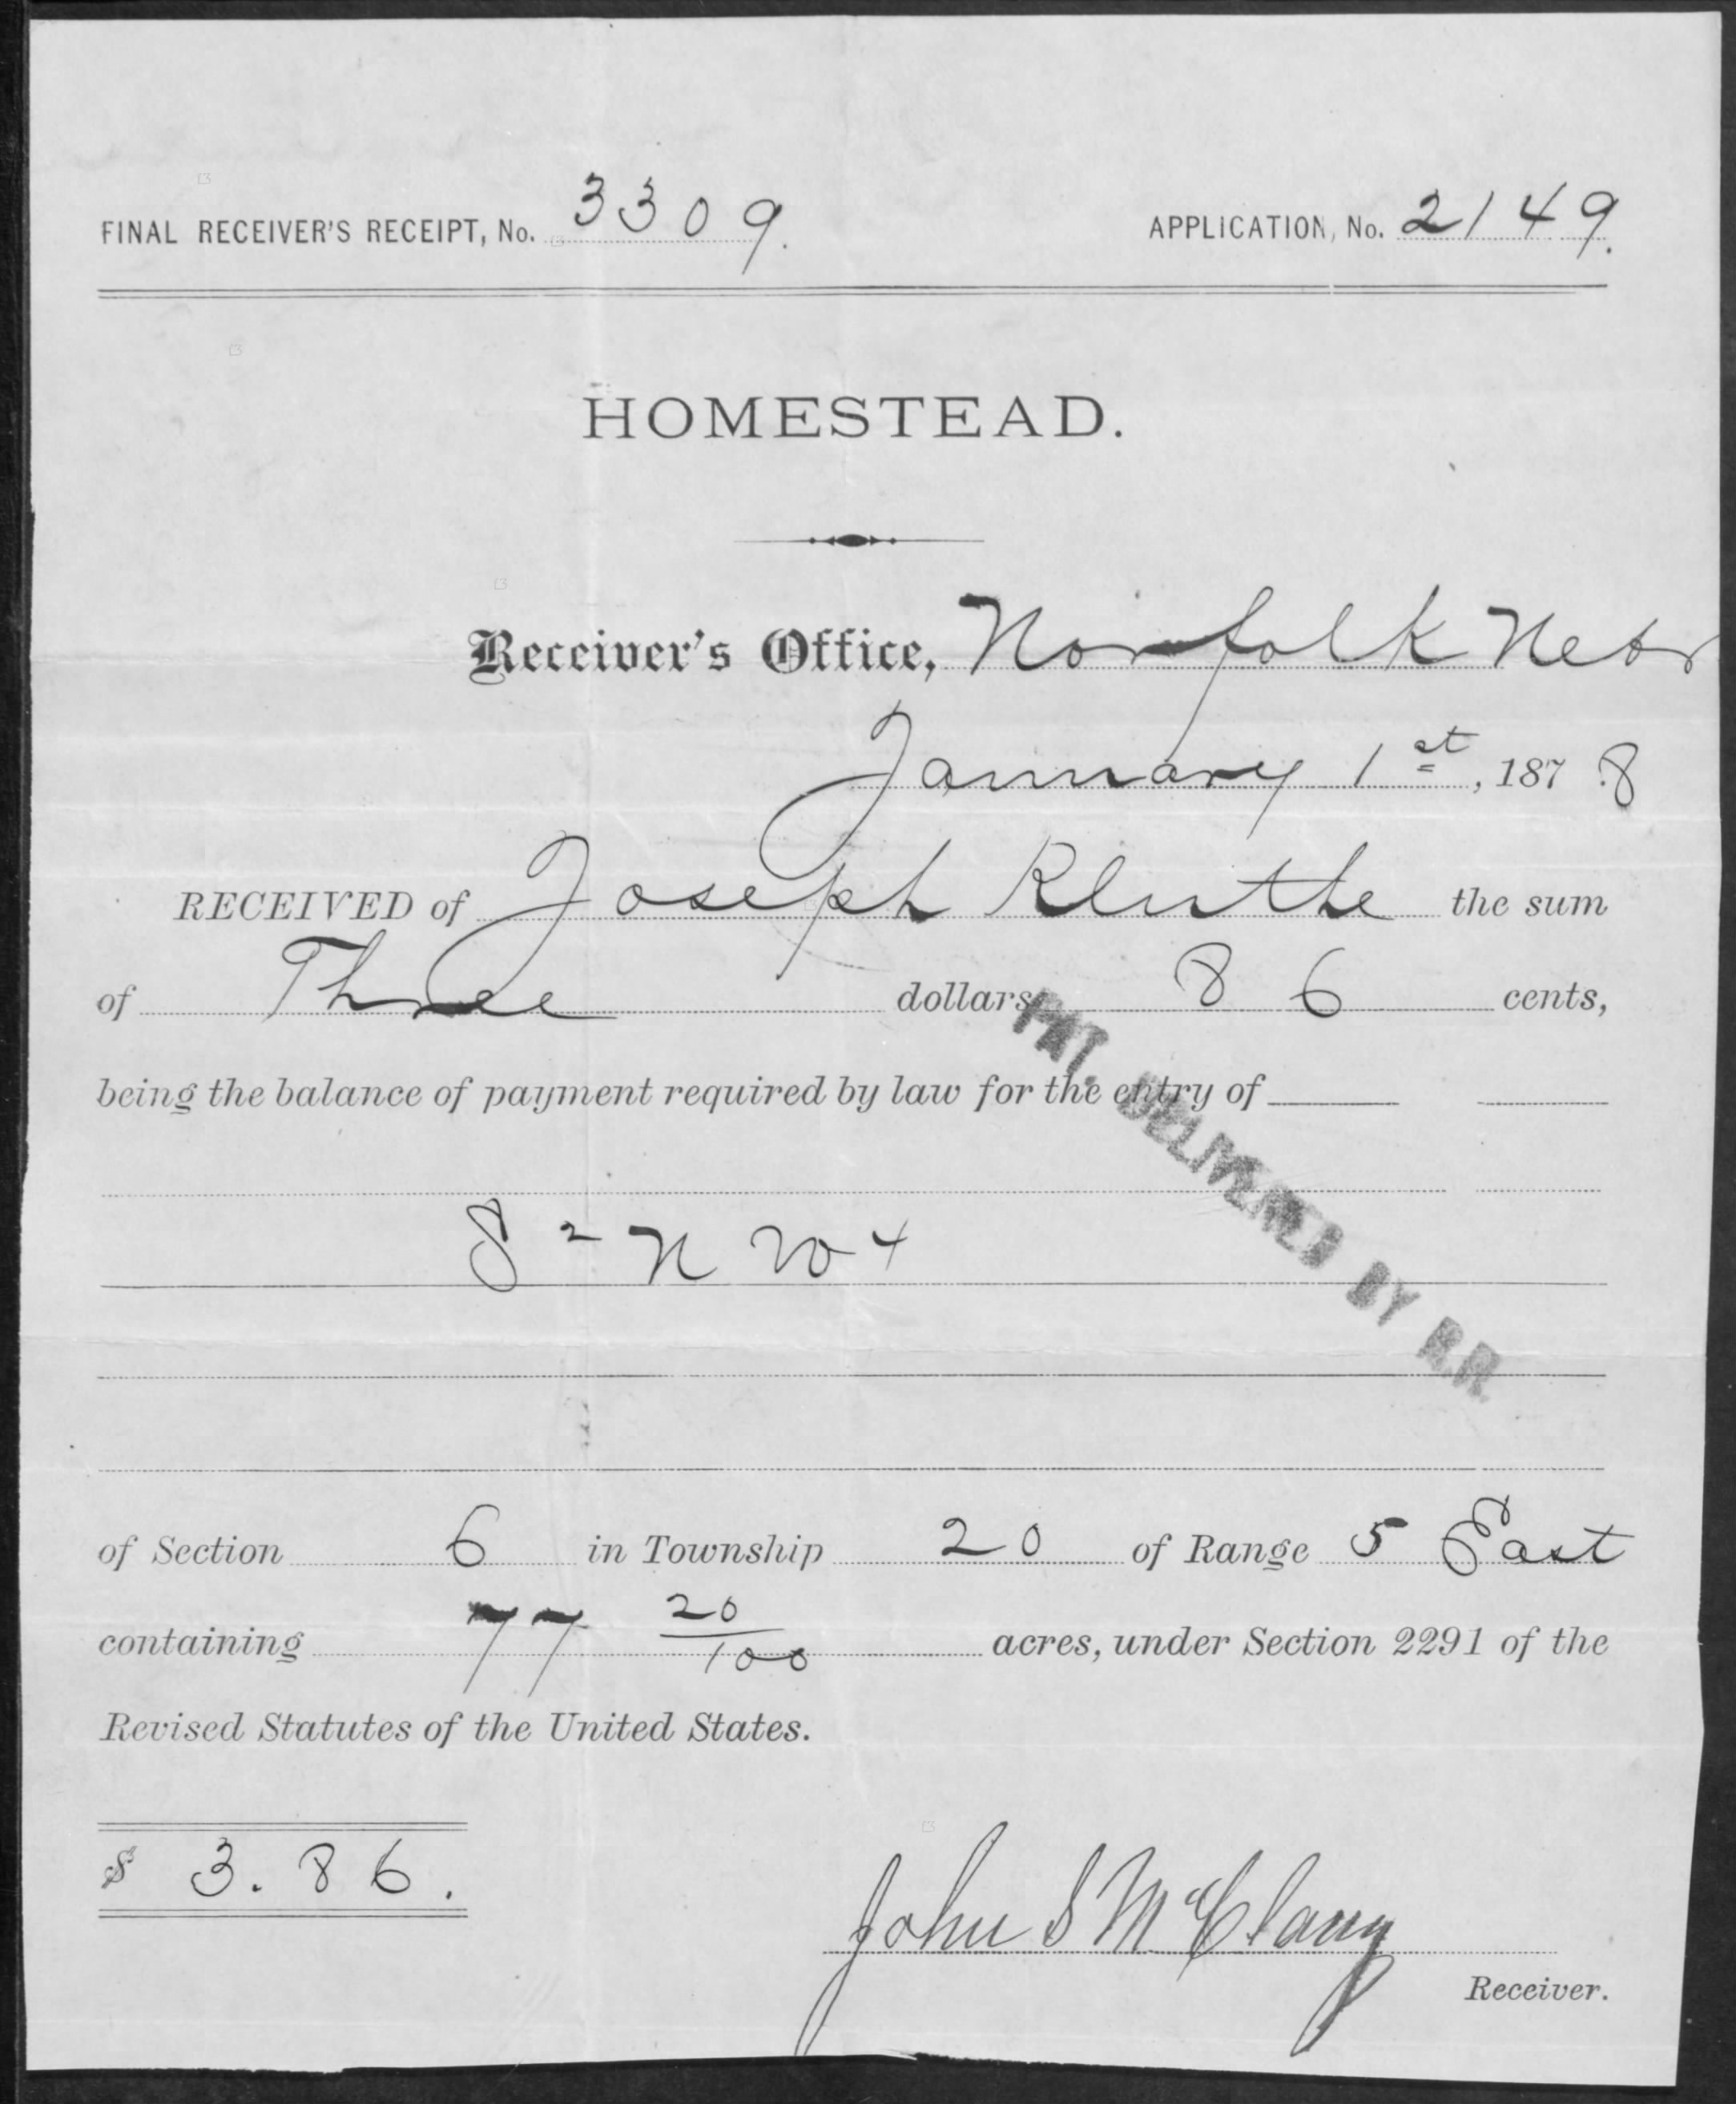 FINAL RECEIVER'S RECEIPT, No. 3309. APPLICATION, No. 2149.
HOMESTEAD.
Receiver's Office, Norfolk Nebr
January 1st, 1878
RECEIVED of Joseph Kluthe the sum
of Three dollars 86 cents,
being the balance of payment required by law for the entry of
PAT. DELIVERED BY R.R.
S 2 N W 4
of Section 6 in Township 20 of Range 5 East
containing 77 20/100 acres, under Section 2291 of the
Revised Statutes of the United States.
$ 3.86.
John S McClary
Receiver.